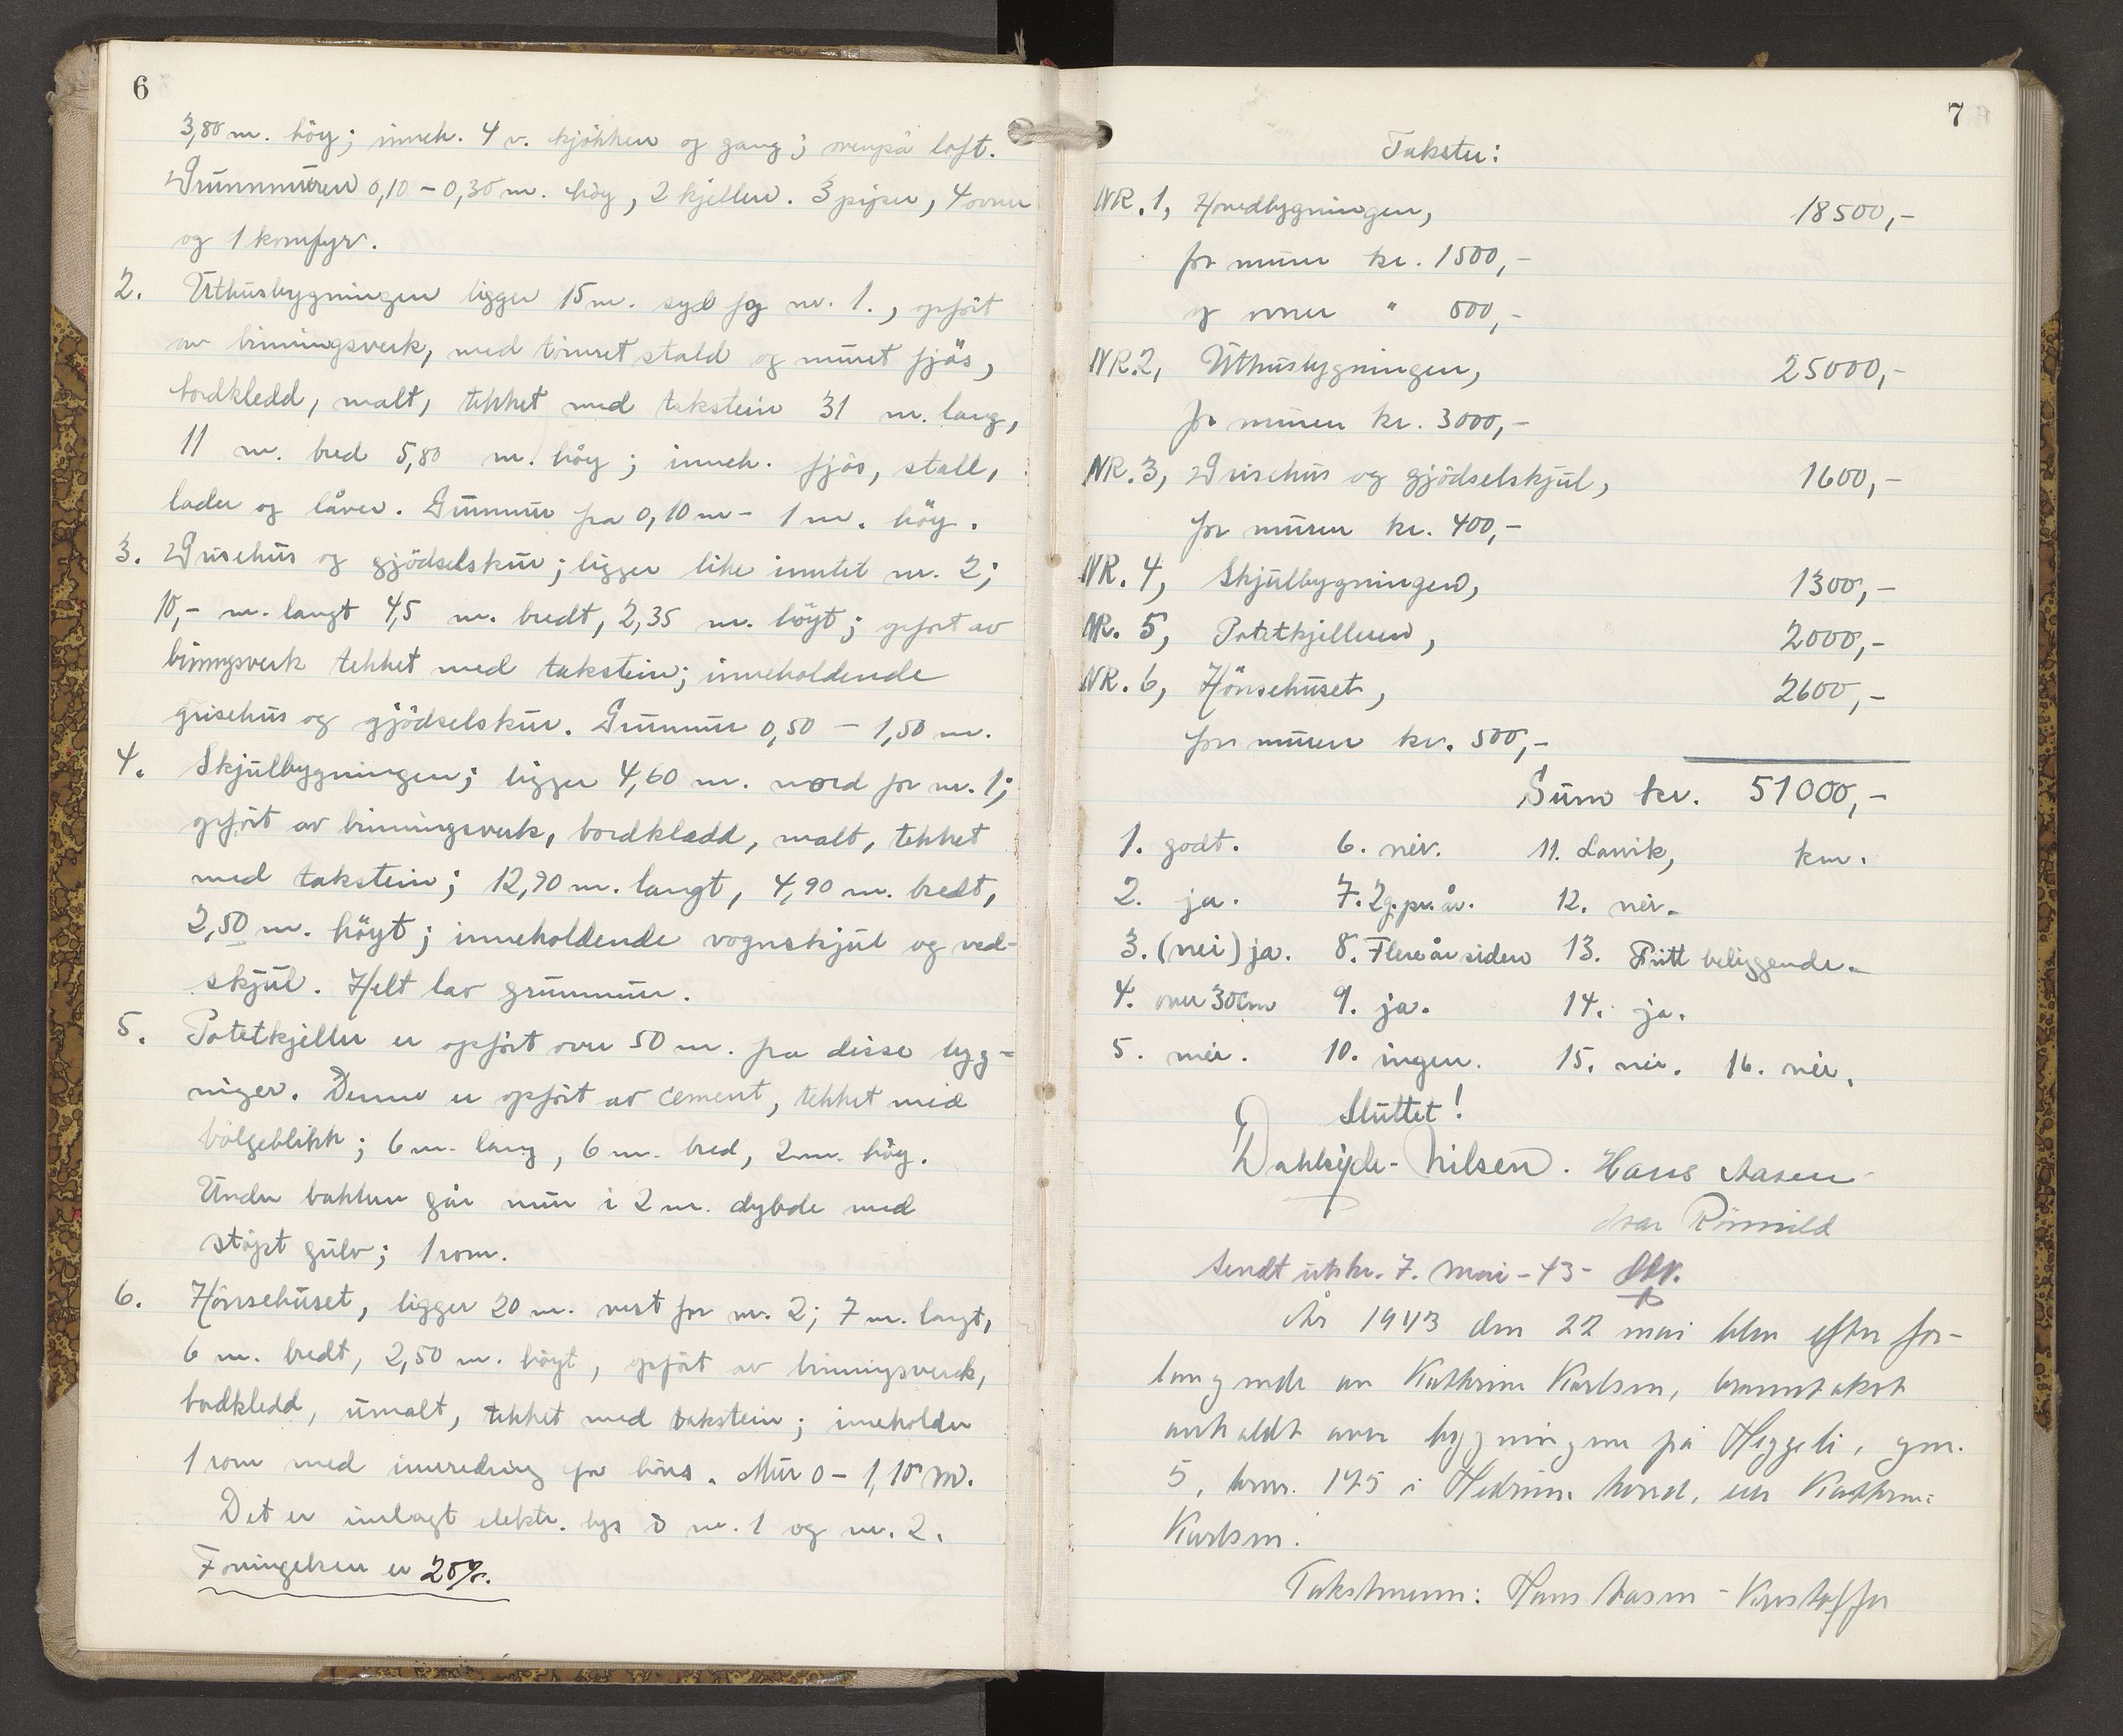 6
3,80 m. höy; inneh. 4 v. kjökken og gang; ovenpå loft.
Grunnmuren 0,10 - 0,30 m. höy, 2 kjellere. 3 piper, 4 ovner
og 1 komfyr.
2. Uthusbygningen ligger 15 m. syd for nr. 1., opfört
av binningsverk, med tömret stald og muret fjös,
bordkledd, malt, tekket med takstein 31 m. lang,
11 m. bred 5,80 m. höy; inneh. fjös, stall,
lader og låver. Grunmur fra 0,10 m - 1 m. höy.
3. Grisehus og gjödselskur; ligger like inntil nr. 2;
10,- m. langt 4,5 m. bredt, 2,35 m. höyt; opfört av
binningsverk tekket med takstein; inneholdende
grisehus og gjödselskur. Grunmur 0,50 - 1,50 m.
4. Skjulbygningen; ligger 4,60 m. nord for nr. 1;
opfört av binningsverk, bordkladd, malt, tekket
med takstein; 12,90 m. langt, 4,90 m. bredt,
2,50 m. höyt; inneholdende vognskjul og ved-
skjul. Helt lav grunmur.
5. Potetkjeller er opfört over 50 m. fra disse byg-
niger. Denne er opfört av cement, tekket med
bölgeblikk; 6 m. lang, 6 m. bred, 2 m. höy.
Under bakken går mur i 2 m. dybde med
stöpt gulv; 1 rom.
6. Hönsehuset, ligger 20 m. vest for nr. 2; 7 m. langt,
6 m. bredt, 2,50 m. höyt, opfört av binningsverk,
bordkledd, umalt, tekket med takstein; inneholder
1 rom med innredning for höns. Mur 0 - 1,10 m.
Det er innlagt elektr. lys i nr. 1 og nr. 2.
Forringelsen er 20%.
7
Takster:
NR. 1, Hovedbygningen, 18500,-
for murer kr. 1500,-
og ovner " 500,-
NR. 2, Uthusbygningen, 25000,-
for muren kr. 3000,-
NR. 3, Grisehus og gjödselskjul, 1600,-
for muren kr. 400,-
NR. 4, Skjulbygningen, 1300,-
NR. 5, Potetkjelleren, 2000,-
NR. 6, Hönsehuset, 2600,-
for muren kr. 500,-
Sum kr. 51000,-
1. godt. 6. nei. 11. Larvik, km.
2. ja. 7. 2 g. pr. år. 12. nei.
3. (nei) ja. 8. Flere år siden 13. Fritt beliggende.
4. over 30 cm 9. ja. 14. ja.
5. nei. 10. ingen. 15. nei. 16. nei.
Sluttet!
Nilsen. Hans Aasen
Ivar Römild
Sendt utskr. 7. mai - 43 -
År 1943 den 22 mai blev efter for-
langende av Kathrine Karlsen, branntakst
avholdt over bygningene på Heggeli, gnr.
5, brnr. 175 i Hedrum herred, eier Kathrine
Karlsen.
Takstmenn: Hans Aasen - Kristoffer